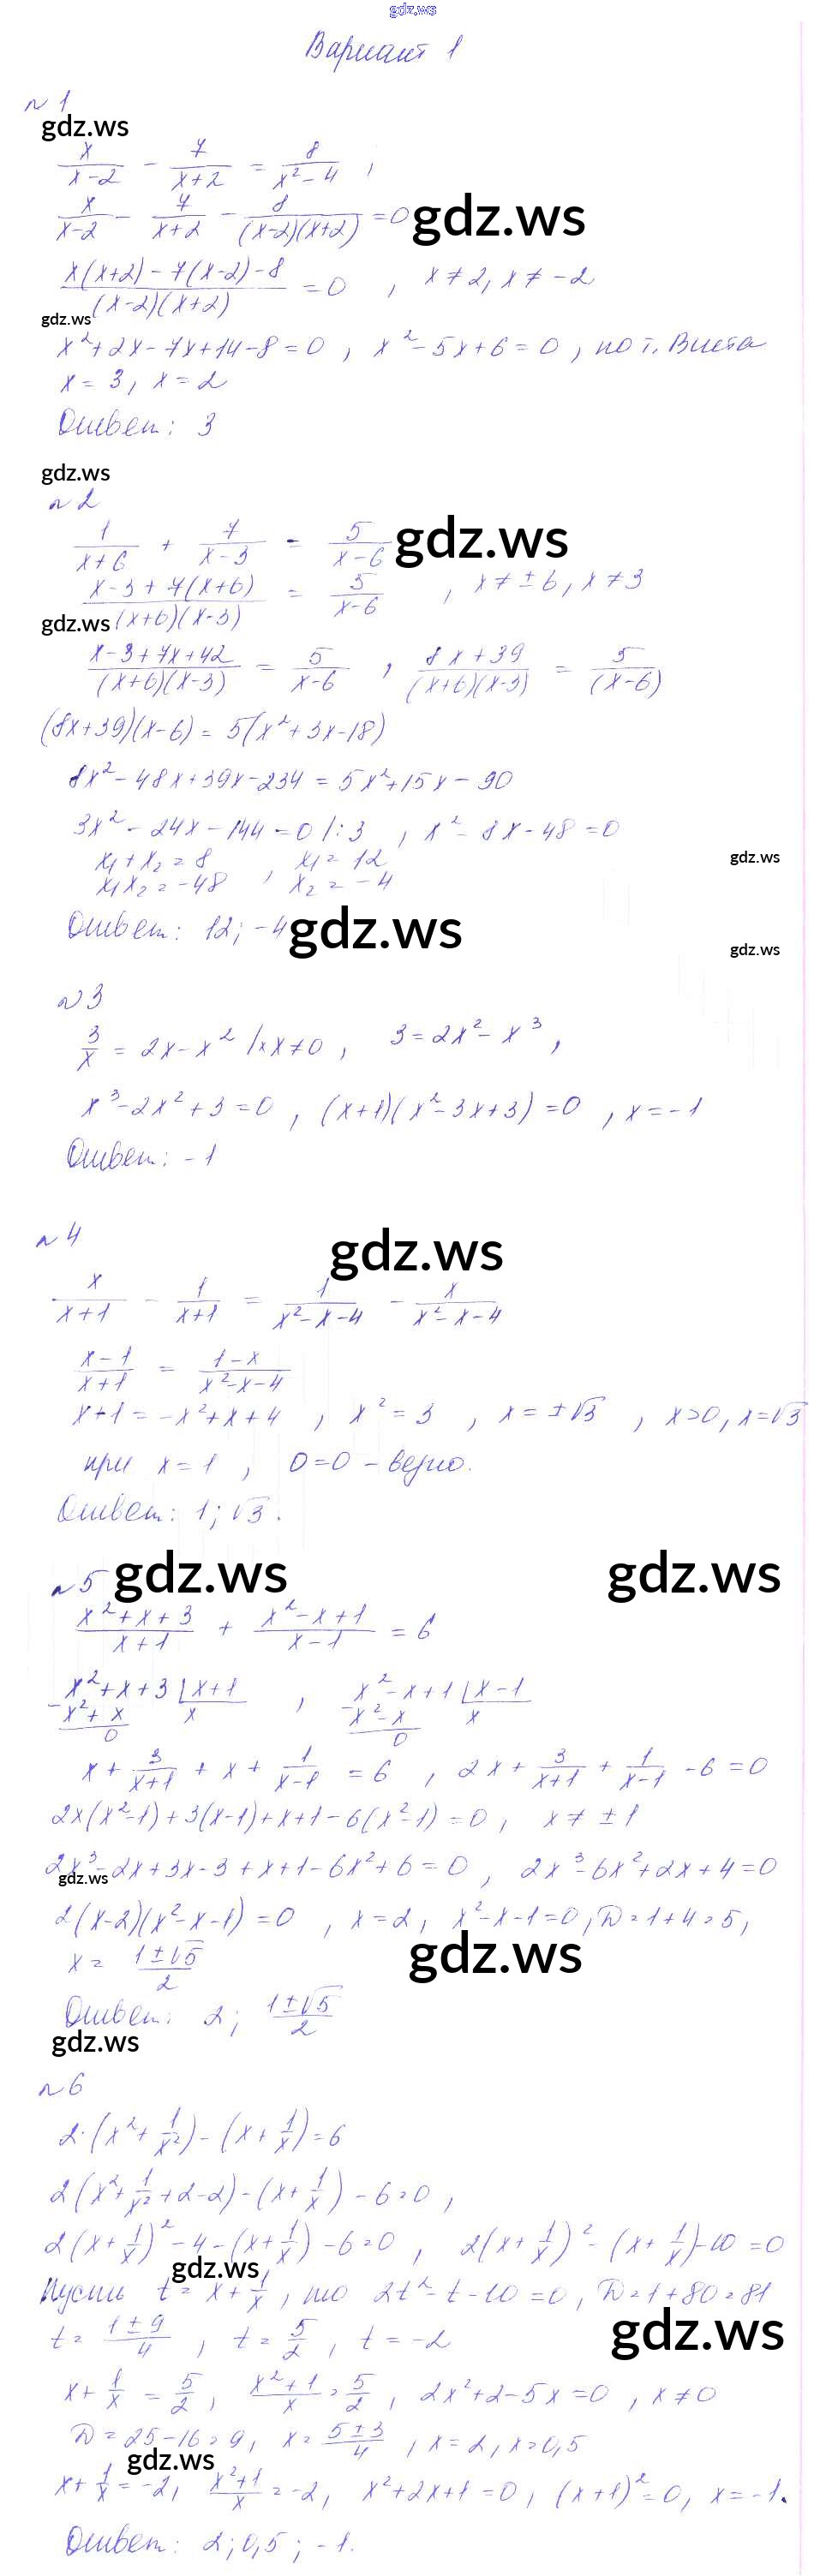 gdz.ws
Вариант 1
№1
gdz.ws
x/(x-2) - 7/(x+2) = 8/(x²-4) ,
x/(x-2) - 7/(x+2) - 8/((x-2)(x+2)) = 0 gdz.ws
(x(x+2)-7(x-2)-8)/((x-2)(x+2)) = 0 , x≠2, x≠-2
gdz.ws
x²+2x-7x+14-8=0 , x²-5x+6=0 , по т. Виета
x=3, x=2
Ответ: 3
gdz.ws
№2
1/(x+6) + 7/(x-3) = 5/(x-6) gdz.ws
(x-3+7(x+6))/((x+6)(x-3)) = 5/(x-6) , x≠±6, x≠3
gdz.ws
(x-3+7x+42)/((x+6)(x-3)) = 5/(x-6) , (8x+39)/((x+6)(x-3)) = 5/(x-6)
(8x+39)(x-6)=5(x²+3x-18)
8x²-48x+39x-234=5x²+15x-90
3x²-24x-144=0 /:3 , x²-8x-48=0
gdz.ws
x₁+x₂=8 , x₁=12
x₁x₂=-48 x₂=-4
Ответ: 12; -4 gdz.ws
gdz.ws
№3
3/x = 2x-x² /·x x≠0 , 3=2x²-x³ ,
x³-2x²+3=0 , (x+1)(x²-3x+3)=0 , x=-1
Ответ: -1
№4
gdz.ws
x/(x+1) - 1/(x+1) = 1/(x²-x-4) - x/(x²-x-4)
(x-1)/(x+1) = (1-x)/(x²-x-4)
x+1=-x²+x+4 , x²=3 , x=±√3 , x>0, x=√3
при x=1 , 0=0 - верно.
Ответ: 1; √3.
№5 gdz.ws gdz.ws
(x²+x+3)/(x+1) + (x²-x+1)/(x-1) = 6
x²+x+3 | x+1 , x²-x+1 | x-1
-x²+x x -x²-x x
0 0
x + 3/(x+1) + x + 1/(x-1) = 6 , 2x + 3/(x+1) + 1/(x-1) - 6 = 0
2x(x²-1)+3(x-1)+x+1-6(x²-1)=0 , x≠±1
2x³-2x+3x-3+x+1-6x²+6=0 , 2x³-6x²+2x+4=0
gdz.ws
2(x-2)(x²-x-1)=0 , x=2, x²-x-1=0, D=1+4=5,
x = (1±√5)/2 gdz.ws
Ответ: 2; (1±√5)/2
gdz.ws
№6
2·(x²+1/x²)-(x+1/x)=6
2(x²+1/x²+2-2)-(x+1/x)-6=0 ,
2(x+1/x)²-4-(x+1/x)-6=0 , 2(x+1/x)²-(x+1/x)-10=0
gdz.ws
Пусть t=x+1/x , то 2t²-t-10=0, D=1+80=81
t=(1±9)/4 , t=5/2 , t=-2 gdz.ws
x+1/x = 5/2 , (x²+1)/x = 5/2 , 2x²+2-5x=0 , x≠0
D=25-16=9, x=(5±3)/4 , x=2, x=0,5
gdz.ws
x+1/x=-2, (x²+1)/x=-2, x²+2x+1=0, (x+1)²=0, x=-1.
Ответ: 2; 0,5; -1.